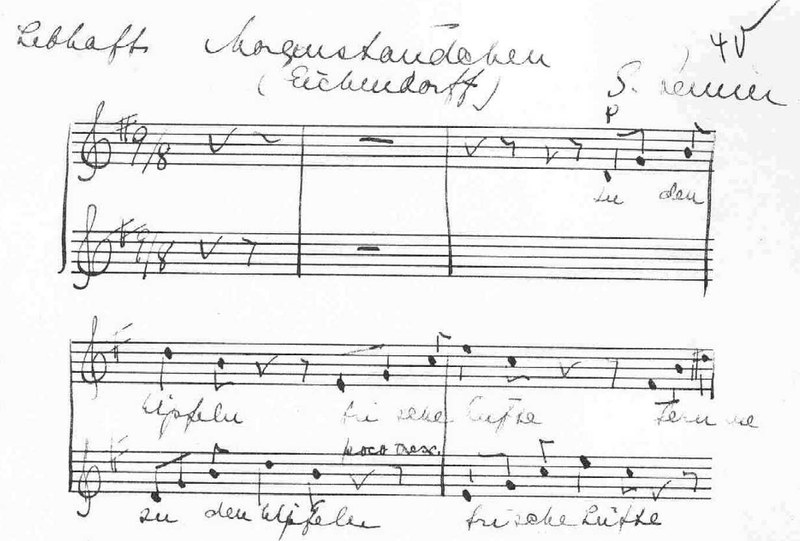 Lebhaft Morgenständchen 4V
(Eichendorff) S.
p
9/8
zu den
9/8
Wipfeln frische Lüfte fern
poco cresc.
zu den Wipfeln frische Lüfte